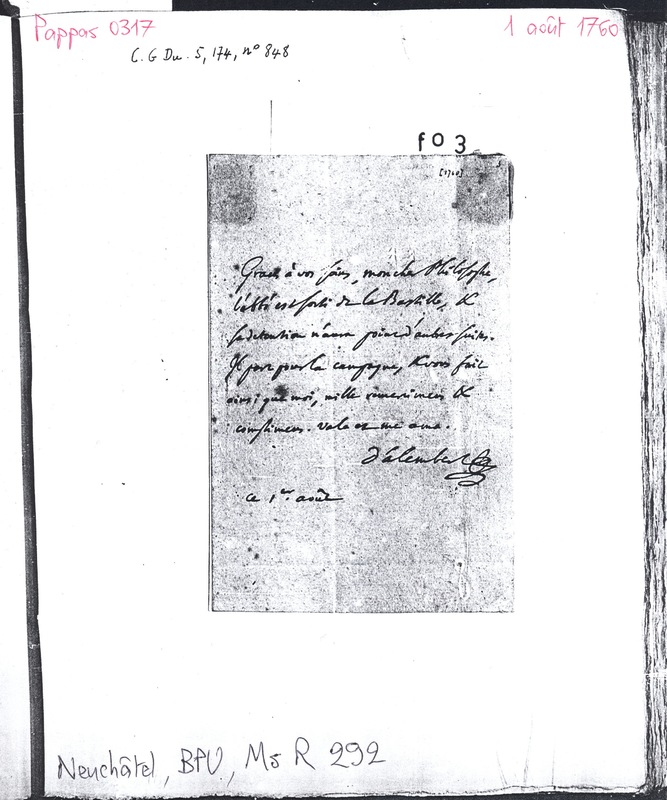 Pappas 0317
1 août 1760
C. G Du. 5, 174, nº 848
f o 3
[1760]
Grace à vos soins, mon cher Philosophe,
l'abbé est sorti de la Bastille, &
sa detention n'aura point d'autres suites.
Il part pour la campagne, & vous fait
ainsi que moi, mille remercimens &
complimens. vale et me ama.
D'alembert
ce 1er. août
Neuchâtel, BPU, Ms R 292